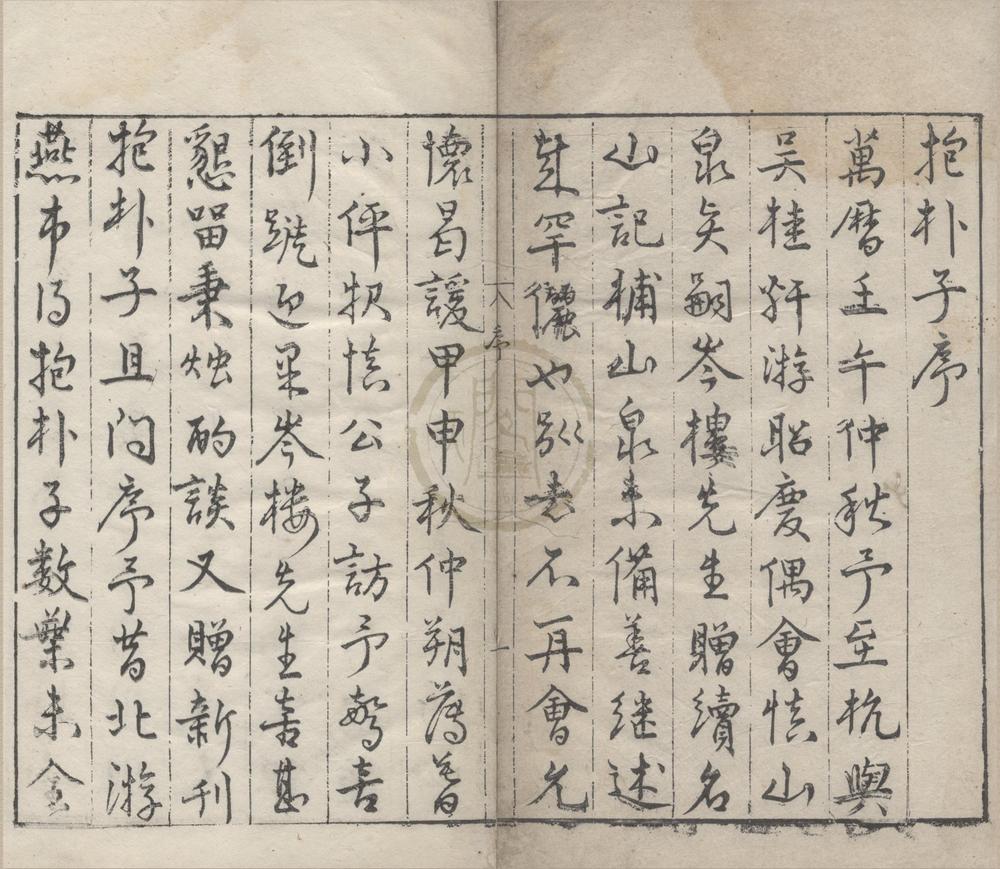 抱朴子序
萬曆壬午仲秋予至杭與
吳桂軒游昭慶偶會慎山
泉矣嗣岑樓先生贈續名
山記補山泉未備善继述
罕儷也别去不再會允
懷曷諼甲申秋仲朔薄暮
小伻報慎公子訪予驚喜
倒蹝迎果岑楼先生喜甚
懇留秉烛酌談又贈新刊
抱朴子且问序予昔北游
燕市得抱朴子数葉未全
序
一